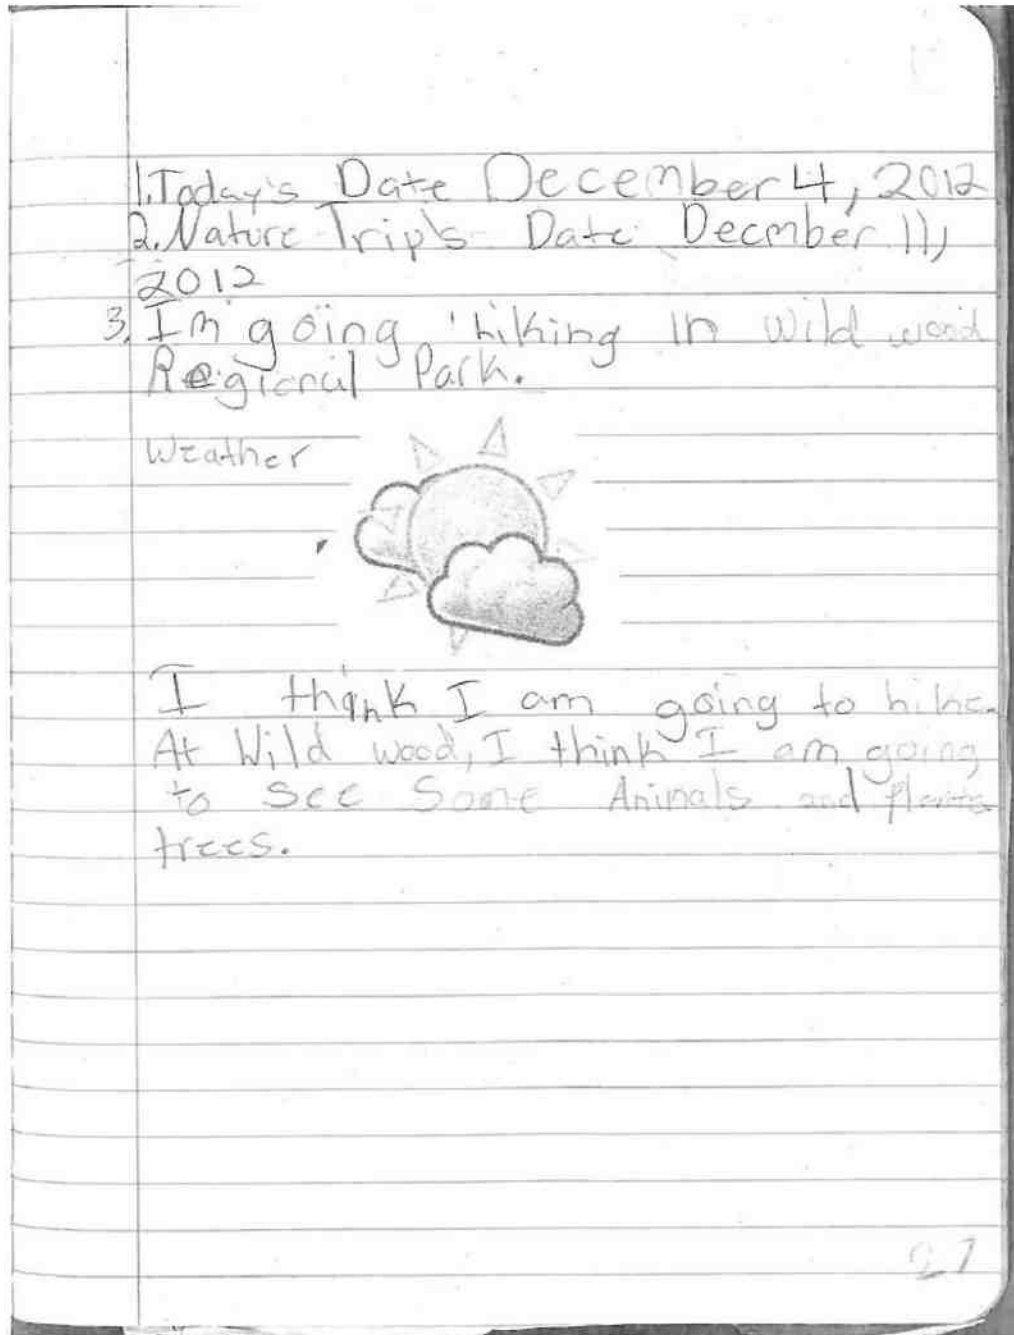 1. Today's Date December 4, 2012
2. Nature Trip's Date Decmber 11,
2012
3. I'm going hiking in Wild wood
Regional Park.
Weather
I think I am going to hike.
At Wild wood, I think I am going
to see Some Animals and plants
trees.
27